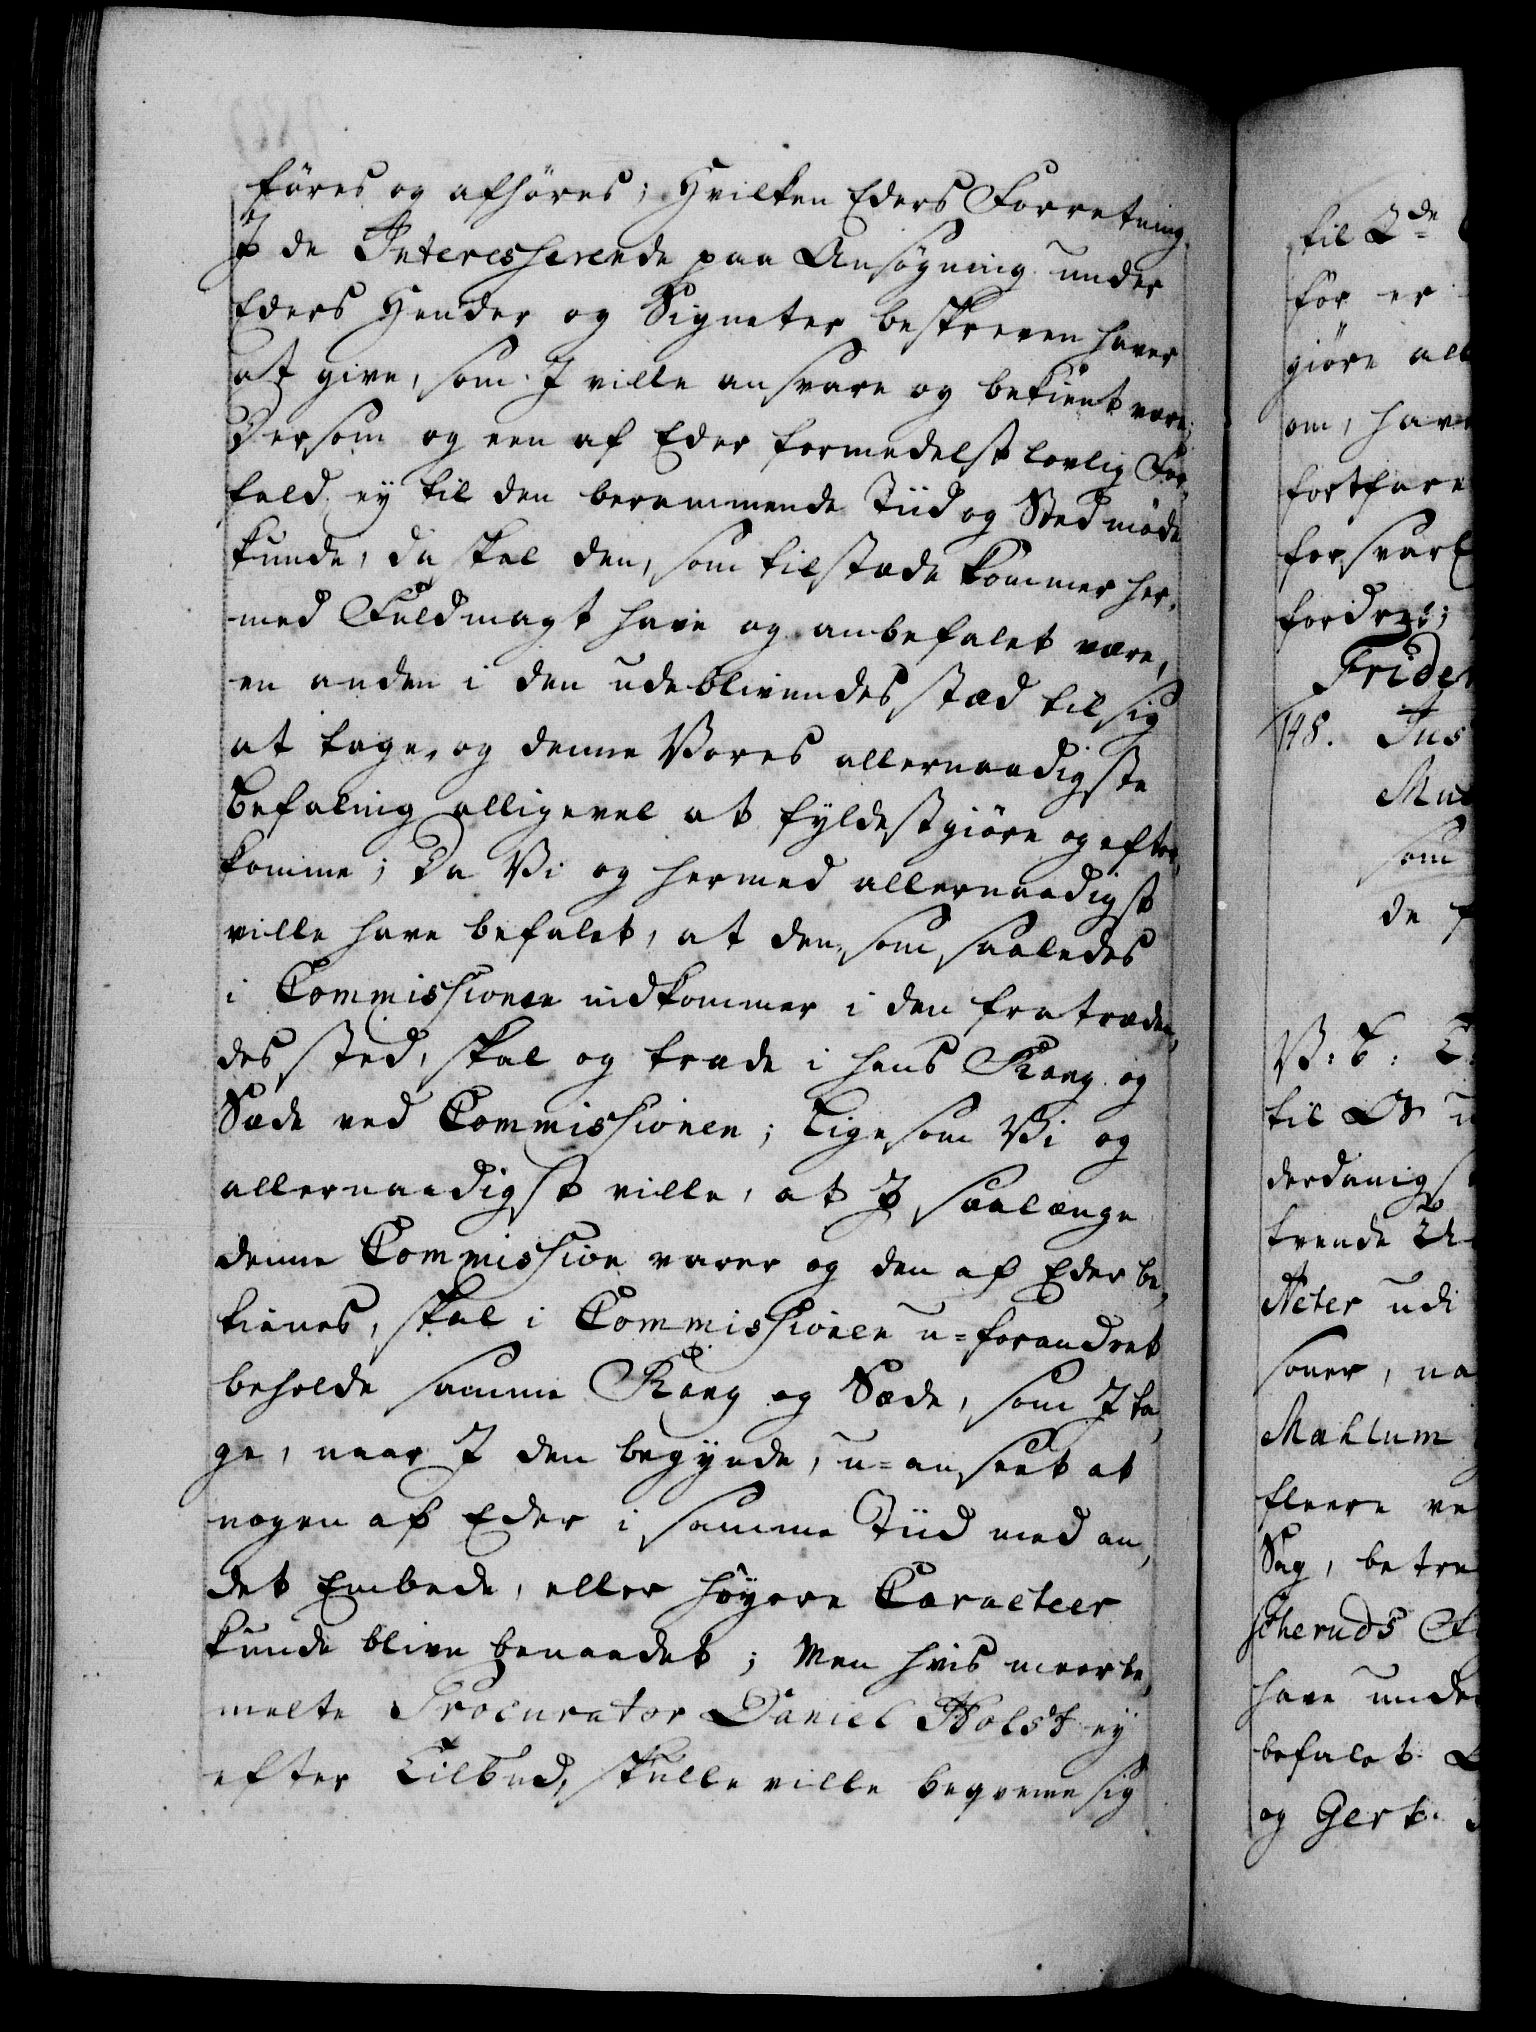 føres og afhøres; Hvilken Eders Forretning
I de Interesserende paa Ansøgning under
Eders Hender og Signeter beskreven haver
at give, som I ville ansvare og bekient være;
Dersom og een af Eder formedelst lovlig For,,
fald ey til den berammende Tiid og Sted møde
kunde, da skal den, som tilstæde kommer her,,
med Fuldmagt have og anbefalet være,
en anden i den udeblivendes stæd til sig
at tage, og denne Vores allernaadigste
Befaling alligevel at fyldestgiøre og efter,,
komme; Da Vi og hermed allernaadigst
ville have befalet, at den, som saaledes
i Commissionen indkommer i den fratræden,,
des sted, skal og træde i hans Rang og
Sæde ved Commissionen; Ligesom Vi og
allernaadigst ville, at I saalænge
denne Commission varer og den af Eder be,,
tienes, skal i Commissionen u=forandret
beholde samme Rang og Sæde, som I ta,,
ge, naar I den begynde, u=anseet at
nogen af Eder i samme Tiid med an,,
det Embede, eller høyere Caracteer
kunde blive benaadet; Men hvis meerbe,,
melte Procurator Daniel Holst ey
efter Tilbud, skulle ville beqvemme sig
til
før er
giøre all
om, hav
fortfare
forsvarl
fordres;
Frider
148. Jus
som
de
V: G: T:
til Os u
derdanigst
trende
Acter udi
soner, na
Mæhlum
fleere ve
Sag, betre
have under
befalet
og Gert